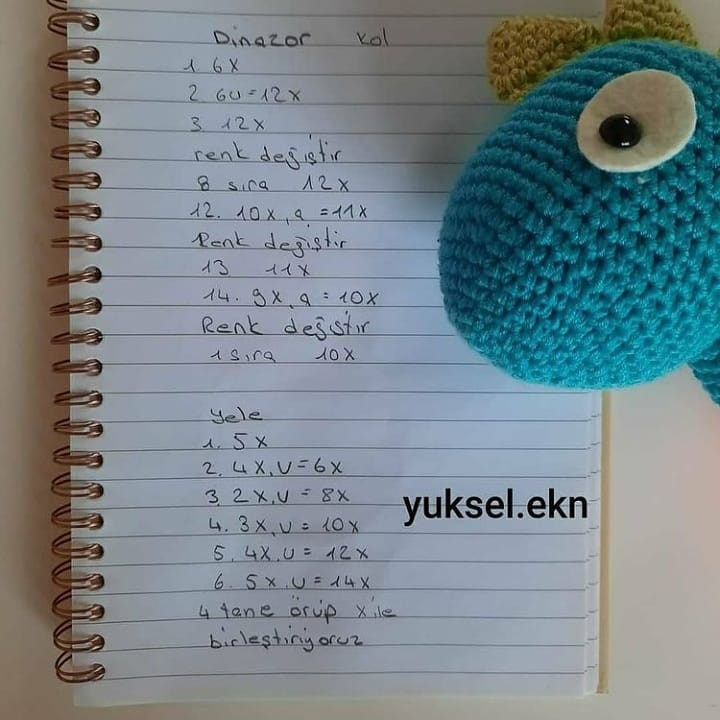 Dinazor kol
1. 6X
2. 6U=12X
3. 12X
renk değiştir
8 sıra 12X
12. 10X, a =11X
Renk değiştir
13 11X
14. 9X, a = 10X
Renk değiştir
1 sıra 10X
Yele
1. 5X
2. 4X, U=6X
3. 2X, U = 8X
4. 3X, U = 10X
5. 4X, U = 12X
6. 5X, U = 14X
4 tane örüp X ile
birleştiriyoruz
yuksel.ekn